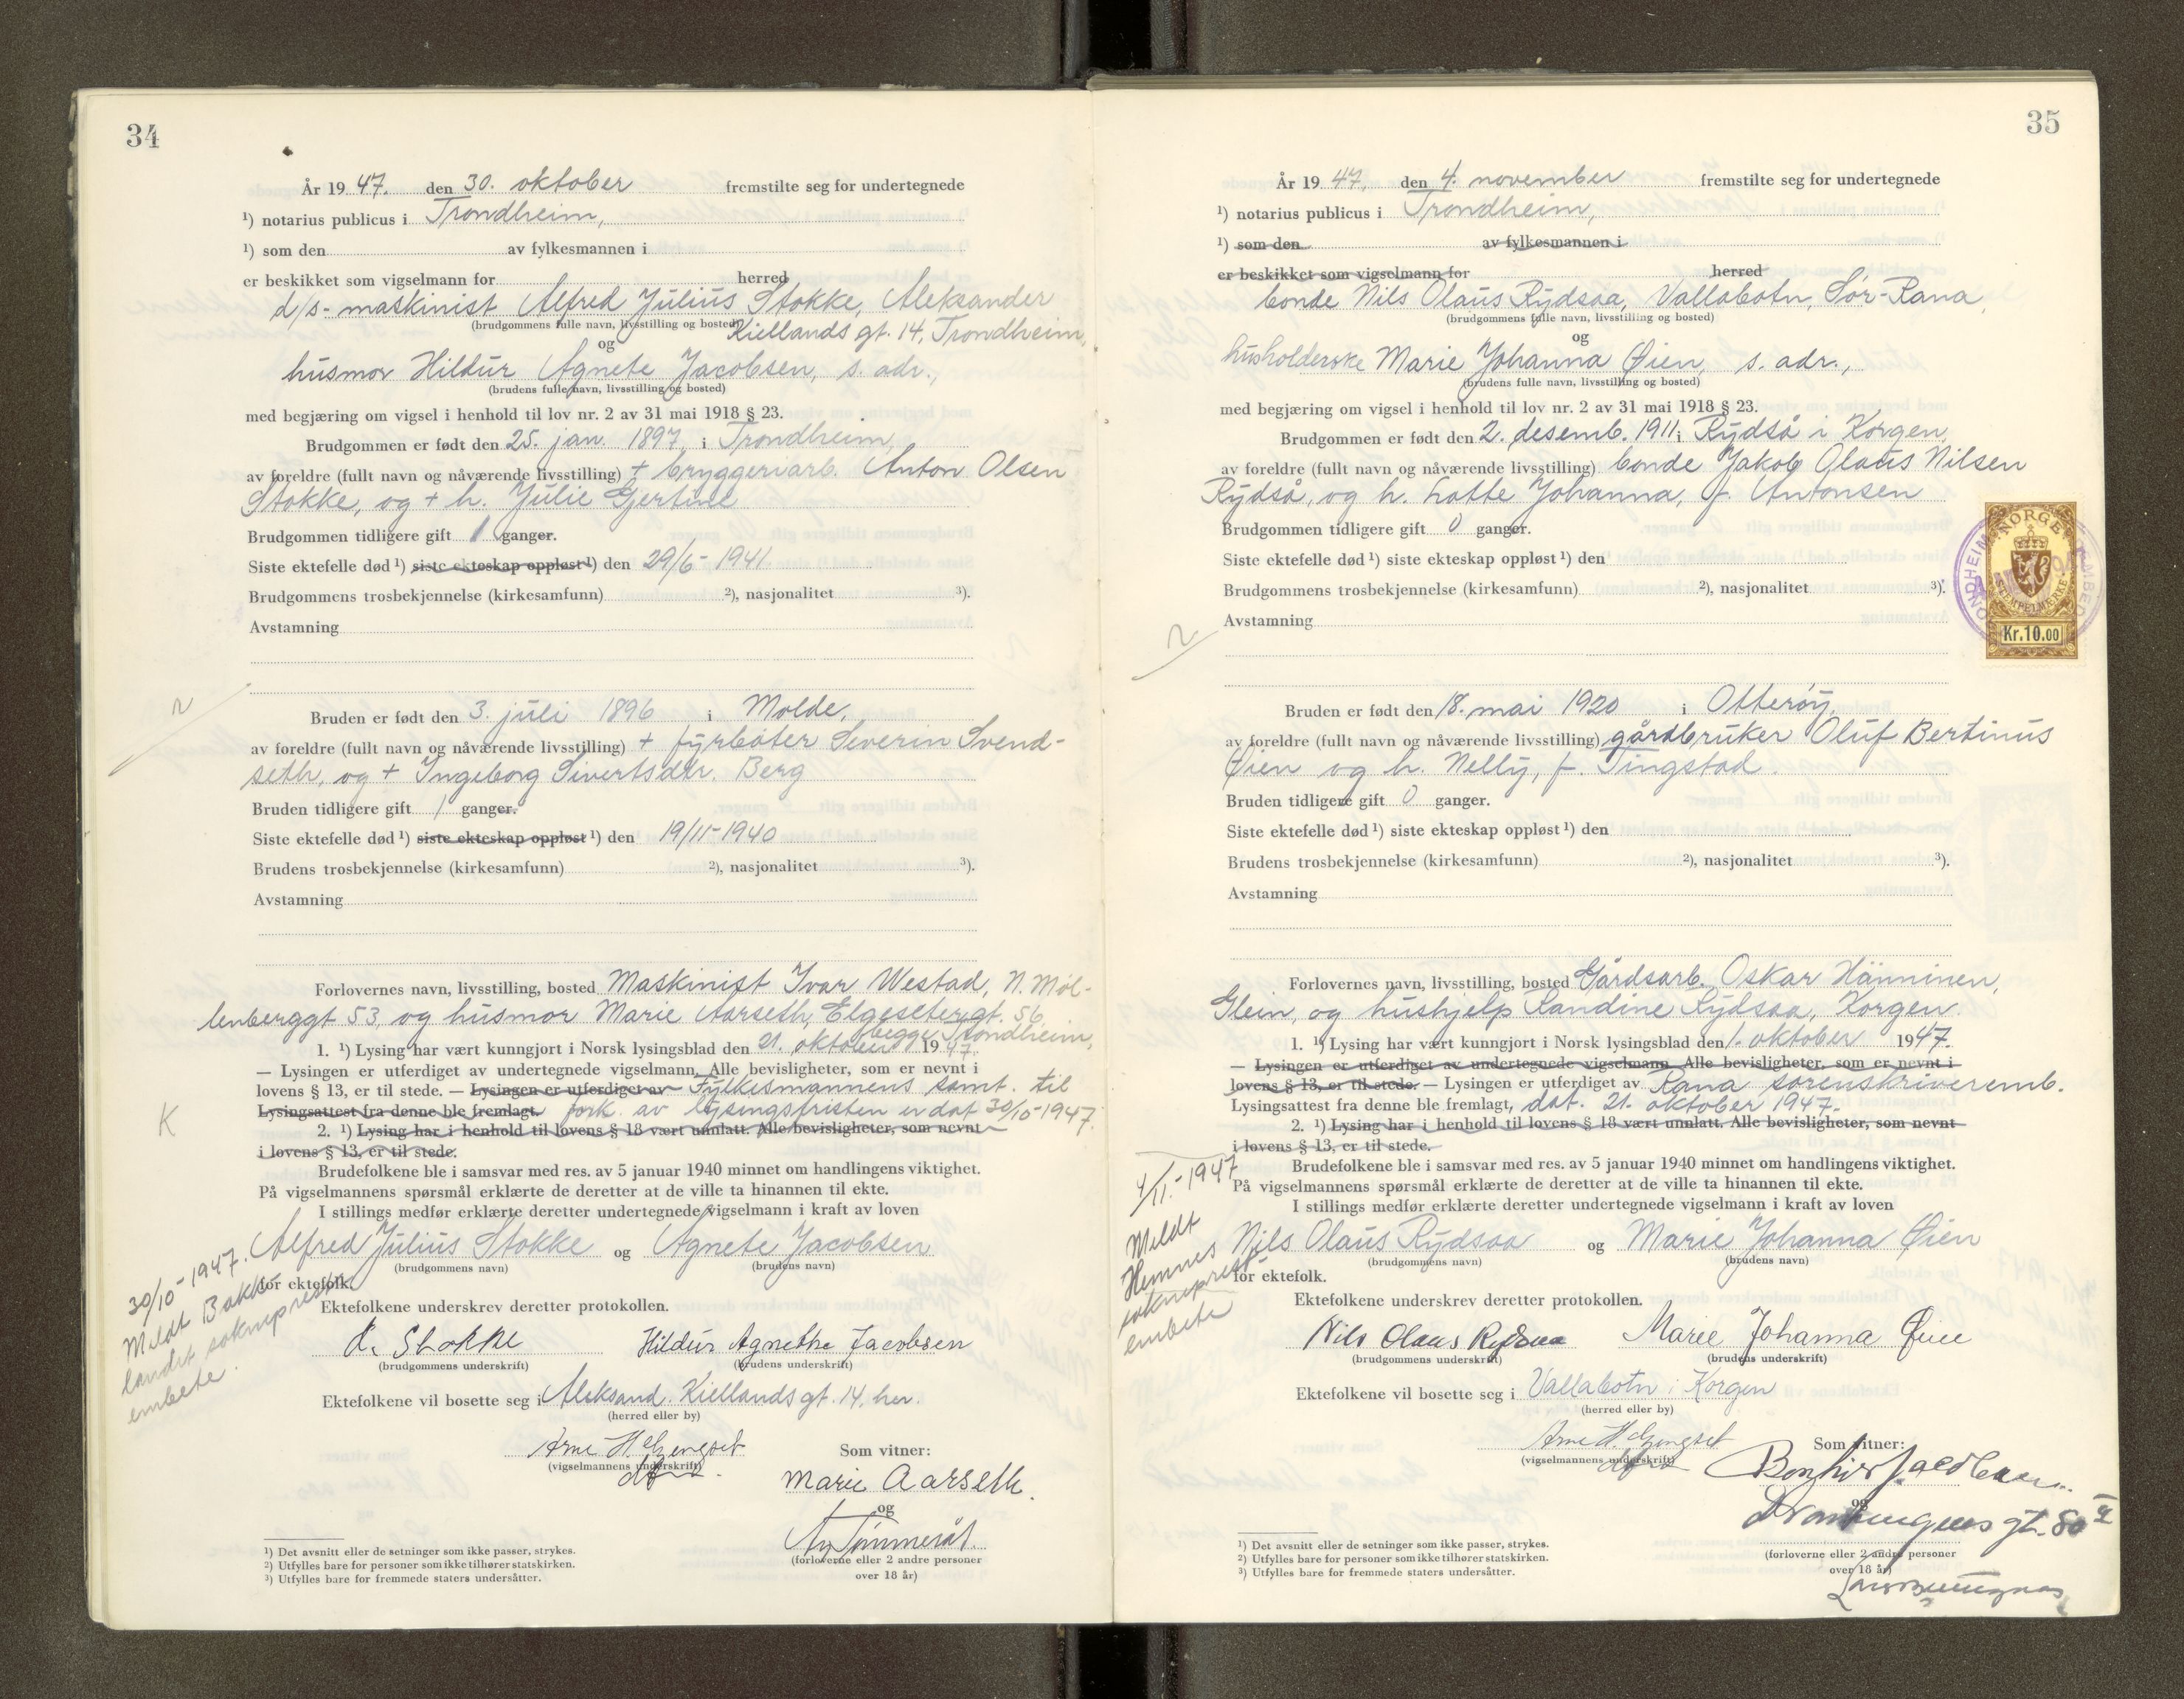 34
År 19 47. den 30. oktober fremstilte seg for undertegnede
¹) notarius publicus i Trondheim,
¹) som den av fylkesmannen i
er beskikket som vigselmann for herred
d/s- maskinist Alfred Julius Stokke, Aleksander
(brudgommens fulle navn, livsstilling og bosted) Kiellands gt. 14, Trondheim,
og
husmor Hildur Agnete Jacobsen, s. adr.,
(brudens fulle navn, livsstilling og bosted)
med begjæring om vigsel i henhold til lov nr. 2 av 31 mai 1918 § 23.
Brudgommen er født den 25. jan. 1897, i Trondheim,
av foreldre (fullt navn og nåværende livsstilling) + bryggeriarb. Anton Olsen
Stokke, og + h. Julie Gjertine
Brudgommen tidligere gift 1 ganger.
Siste ektefelle død ¹) siste ekteskap oppløst ¹) den 29/6-1941
Brudgommens trosbekjennelse (kirkesamfunn) ²), nasjonalitet ³).
Avstamning
Bruden er født den 3. juli 1896 i Molde,
av foreldre (fullt navn og nåværende livsstilling) + fyrbøter Severin Svend-
seth, og + Ingeborg Sivertsdtr. Berg
Bruden tidligere gift 1 ganger.
Siste ektefelle død ¹) siste ekteskap oppløst ¹) den 19/11-1940
Brudens trosbekjennelse (kirkesamfunn) ²), nasjonalitet ³).
Avstamning
Forlovernes navn, livsstilling, bosted Maskinist Ivar Westad, N. Møl-
lenberggt 53, og husmor Marie Aarseth, Elgesetergt. 56,
begge Trondheim,
1. ¹) Lysing har vært kunngjort i Norsk lysingsblad den 21. oktober 19 47.
— Lysingen er utferdiget av undertegnede vigselmann. Alle bevisligheter, som er nevnt i
lovens § 13, er til stede. — Lysingen er utferdiget av Fylkesmannens samt. til
Lysingsattest fra denne ble fremlagt. fork. av lysingsfristen er dat 30/10-1947.
2. ¹) Lysing har i henhold til lovens § 18 vært unnlatt. Alle bevisligheter, som nevnt
i lovens § 13, er til stede.
K
Brudefolkene ble i samsvar med res. av 5 januar 1940 minnet om handlingens viktighet.
På vigselmannens spørsmål erklærte de deretter at de ville ta hinannen til ekte.
I stillings medfør erklærte deretter undertegnede vigselmann i kraft av loven
Alfred Julius Stokke og Agnete Jacobsen
(brudgommens navn) (brudens navn)
for ektefolk.
30/10-1947.
Meldt Bakke
landet sokneprest
embete.
Ektefolkene underskrev deretter protokollen.
A. Stokke Hildur Agnethe Jacobsen
(brudgommens underskrift) (brudens underskrift)
Ektefolkene vil bosette seg i Aleksand. Kiellandsgt. 14, her.
(herred eller by)
Som vitner:
(vigselmannens underskrift)
Marie Aarseth.
og
(forloverne eller 2 andre personer
over 18 år)
¹) Det avsnitt eller de setninger som ikke passer, strykes.
²) Utfylles bare for personer som ikke tilhører statskirken.
³) Utfylles bare for fremmede staters undersåtter.
35
År 19 47, den 4. november fremstilte seg for undertegnede
¹) notarius publicus i Trondheim,
¹) som den av fylkesmannen i
er beskikket som vigselmann for herred
bonde Nils Olaus Rydsaa, Vallabotn, Sør-Rana,
(brudgommens fulle navn, livsstilling og bosted)
og
husholderske Marie Johanna Øien, s. adr.,
(brudens fulle navn, livsstilling og bosted)
med begjæring om vigsel i henhold til lov nr. 2 av 31 mai 1918 § 23.
Brudgommen er født den 2. desemb. 1911 i Rydså i Korgen,
av foreldre (fullt navn og nåværende livsstilling) bonde Jakob Olaus Nilsen
Rydså, og h. Lotte Johanna, f. Antonsen
Brudgommen tidligere gift 0 ganger.
Siste ektefelle død ¹) siste ekteskap oppløst ¹) den
Brudgommens trosbekjennelse (kirkesamfunn) ²), nasjonalitet ³).
Avstamning
NORGE
STEMPELMERKE
Kr.10.00
Bruden er født den 18. mai 1920 i Otterøy,
av foreldre (fullt navn og nåværende livsstilling) gårdbruker Oluf Bertinus
Øien og h. Nelly, f. Tingstad.
Bruden tidligere gift 0 ganger.
Siste ektefelle død ¹) siste ekteskap oppløst ¹) den
Brudens trosbekjennelse (kirkesamfunn) ²), nasjonalitet ³).
Avstamning
Forlovernes navn, livsstilling, bosted Gårdsarb. Oskar Hänninen,
Glein, og hushjelp Randine Rydsaa, Korgen.
1. ¹) Lysing har vært kunngjort i Norsk lysingsblad den 1. oktober 1947.
— Lysingen er utferdiget av undertegnede vigselmann. Alle bevisligheter, som er nevnt i
lovens § 13, er til stede. — Lysingen er utferdiget av Rana sorenskriveremb.
Lysingsattest fra denne ble fremlagt, dat. 21. oktober 1947.
2. ¹) Lysing har i henhold til lovens § 18 vært unnlatt. Alle bevisligheter, som nevnt
i lovens § 13, er til stede.
Brudefolkene ble i samsvar med res. av 5 januar 1940 minnet om handlingens viktighet.
På vigselmannens spørsmål erklærte de deretter at de ville ta hinannen til ekte.
I stillings medfør erklærte deretter undertegnede vigselmann i kraft av loven
Nils Olaus Rydsaa og Marie Johanna Øien
(brudgommens navn) (brudens navn)
for ektefolk.
4/11.-1947
Meldt
Hemnes
sokneprest-
embete
Ektefolkene underskrev deretter protokollen.
Nils Olaus Rydsaa Marie Johanna Øien
(brudgommens underskrift) (brudens underskrift)
Ektefolkene vil bosette seg i Vallabotn i Korgen
(herred eller by)
Som vitner:
(vigselmannens underskrift)
og
gt. 80
(forloverne eller 2 andre personer
over 18 år)
¹) Det avsnitt eller de setninger som ikke passer, strykes.
²) Utfylles bare for personer som ikke tilhører statskirken.
³) Utfylles bare for fremmede staters undersåtter.